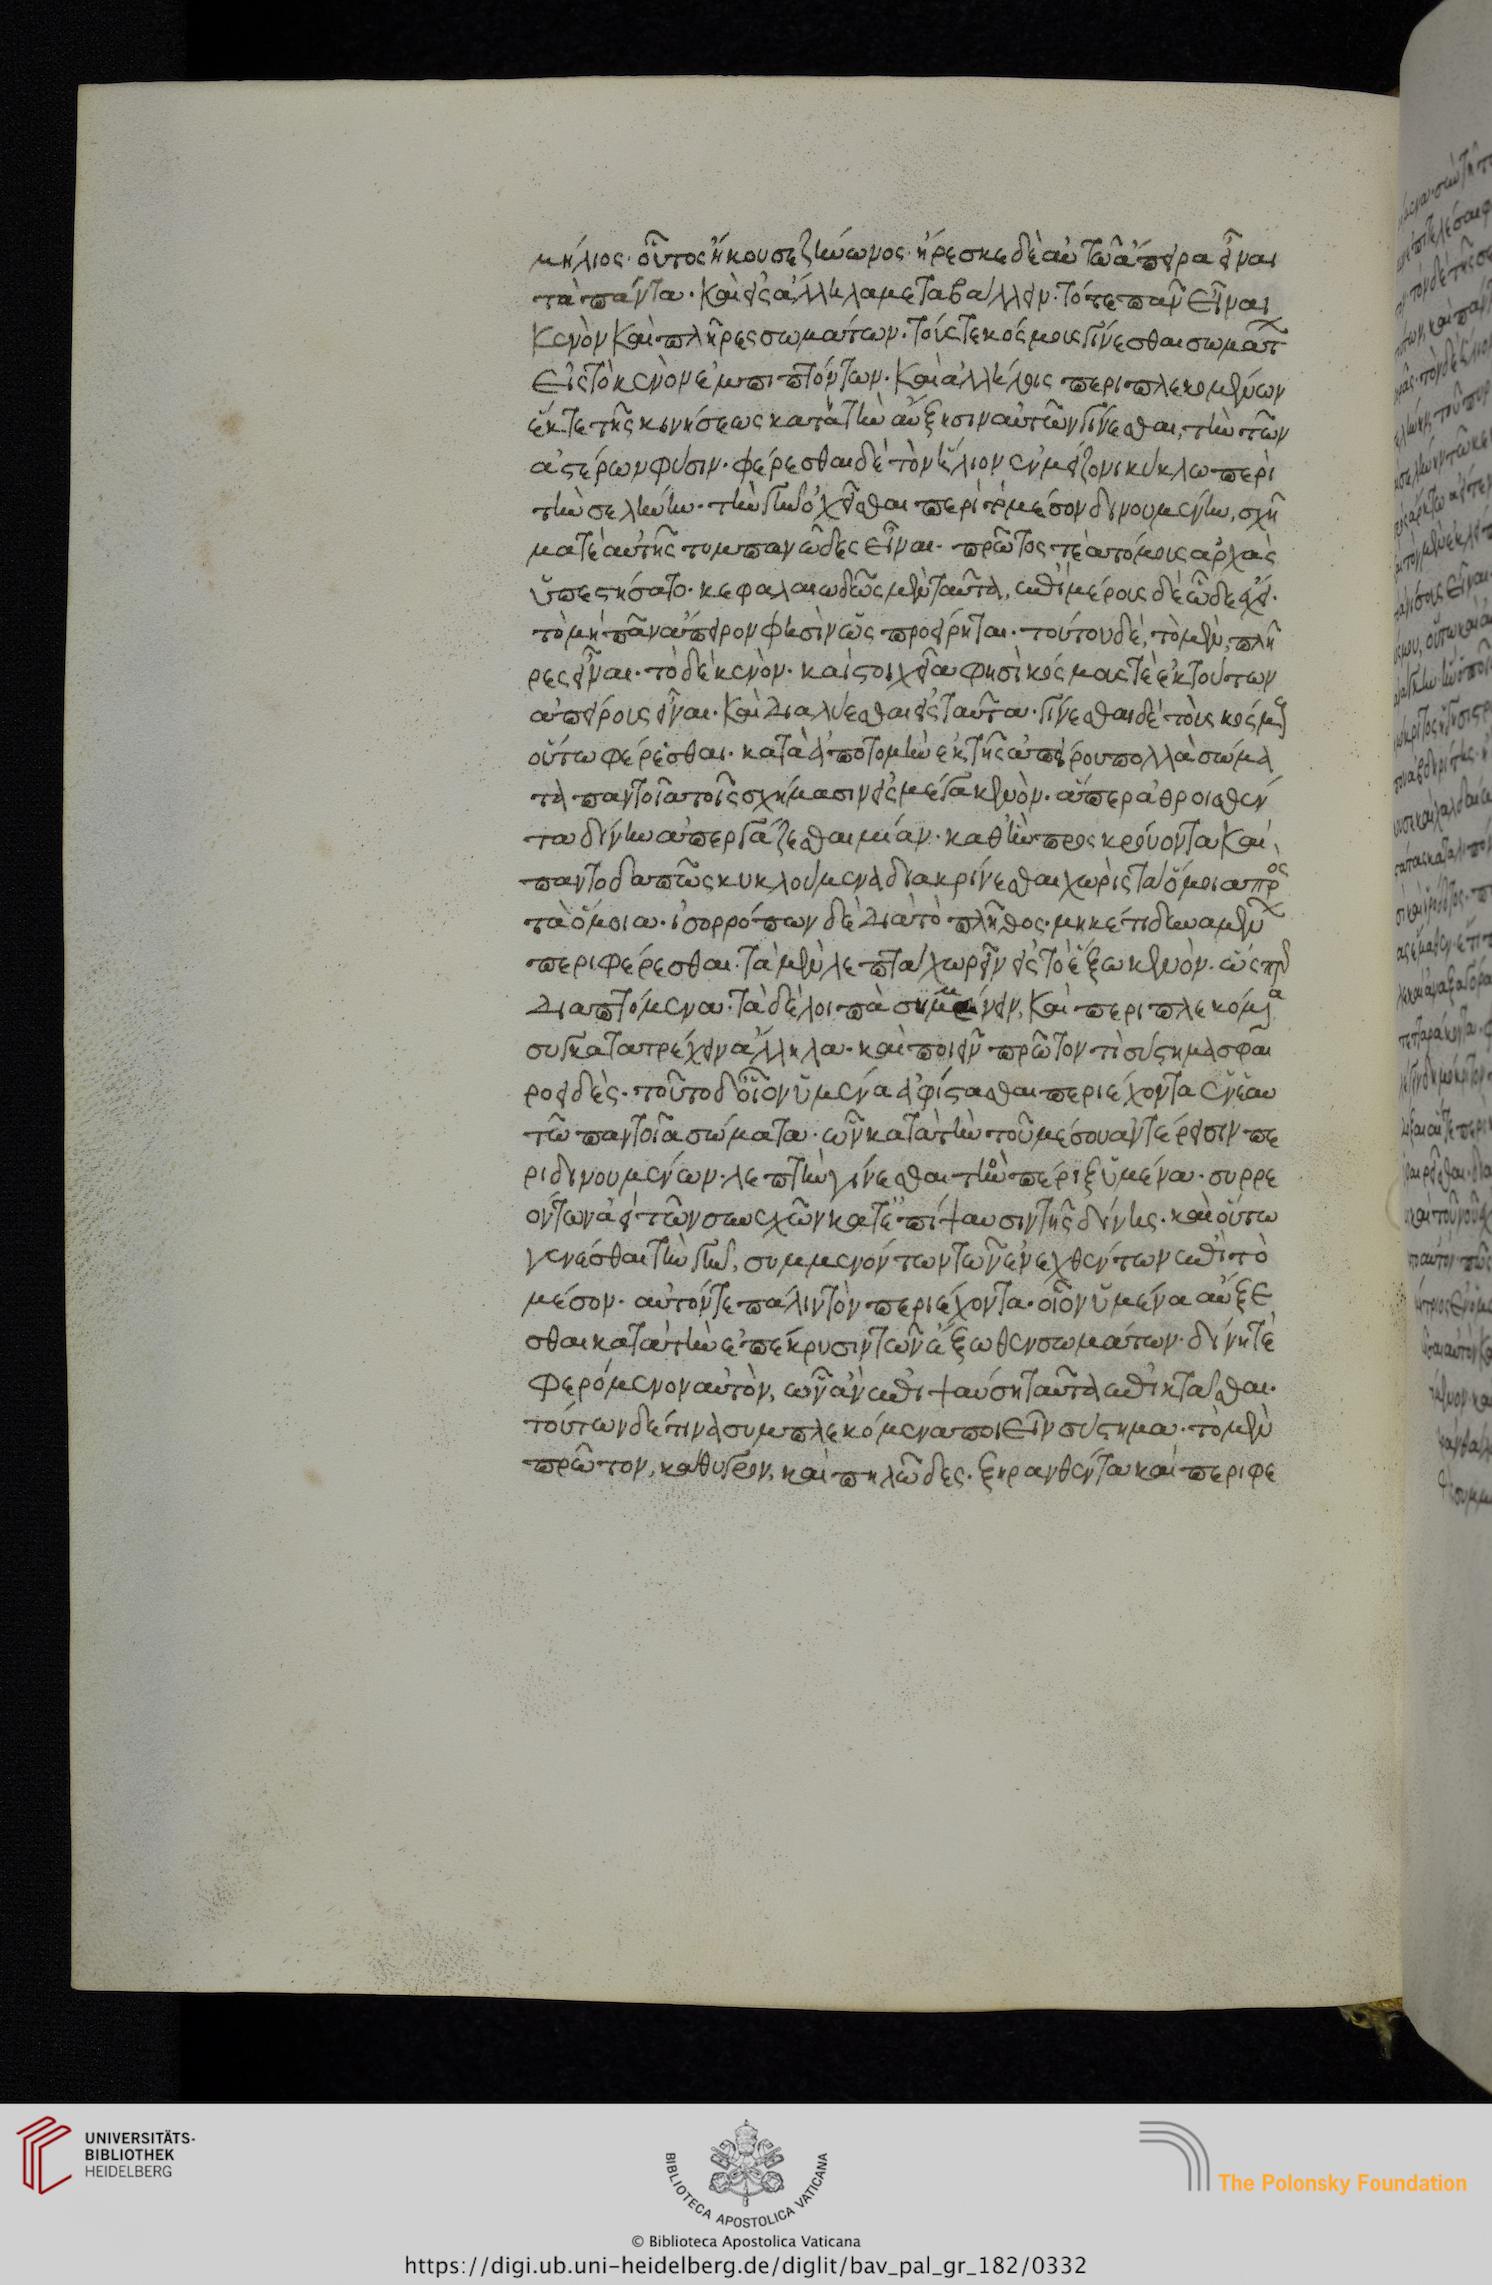 μήλιος· οὗτος ἤκουσε ζήνωνος· ἤρεσκε δὲ αὐτῶ ἄπειρα εἶναι
τὰ πάντα· καὶ εἰς ἄλληλα μεταβάλλειν· τό τε πᾶν εἶναι
κενὸν καὶ πλῆρες σωμάτων· τούς τε κόσμους γίνεσθαι σωμάτ
εἰς τὸ κενὸν ἐμπιπτόντων· καὶ ἀλλήλοις περιπλεκομένων
ἔκ τε τῆς κινήσεως κατὰ τὴν αὔξησιν αὐτῶν γίνεσθαι, τὴν τῶν
ἀστέρων φύσιν· φέρεσθαι δὲ τὸν ἥλιον ἐν μείζονι κύκλω περὶ
τὴν σελήνην· τὴν γῆν ὀχεῖσθαι περὶ τὸ μέσον δινουμένην, σχῆ
μά τε αὐτῆς τυμπανῶδες εἶναι· πρῶτός τε ἀτόμους ἀρχὰς
ὑπεστήσατο· κεφαλαιωδῶς μὲν ταῦτα, ἐπὶ μέρους δὲ ὧδε ἔχει·
τὸ μὴ πᾶν ἄπειρον φησὶν ὡς προείρηται· τούτου δὲ, τὸ μὲν, πλῆ
ρες εἶναι· τὸ δὲ κενὸν· καὶ στοιχεῖα φησὶ κόσμους τε ἐκ τούτων
ἀπείρους εἶναι· καὶ διαλύεσθαι εἰς ταῦτα· γίνεσθαι δὲ τοὺς κόσμους
οὕτω φέρεσθαι· κατὰ ἀποτομὴν ἐκ τῆς ἀπείρου πολλὰ σώμα
τα παντοῖα τοῖς σχήμασιν εἰς μέγα κενόν· ἅπερ ἀθροισθέν
τα δίνην ἀπεργάζεσθαι μίαν· καθ' ἣν προσκρούοντα καὶ
παντοδαπῶς κυκλούμενα διακρίνεσθαι χωρὶς τὰ ὅμοια πρὸς
τὰ ὅμοια· ἰσορρόπων δὲ διὰ τὸ πλῆθος· μηκέτι δυναμέν
περιφέρεσθαι· τὰ μὲν λεπτὰ χωρεῖν εἰς τὸ ἔξω κενόν· ὥσπερ
διαπτόμενα· τὰ δὲ λοιπὰ συμμένειν, καὶ περιπλεκόμενα
συγκατατρέχειν ἄλληλα· καὶ ποιεῖν πρῶτόν τι σύστημα σφαι
ροειδές· τοῦτο δ' οἷον ὑμένα ἀφίστασθαι περιέχοντα ἐν ἑαυ
τῶ παντοῖα σώματα· ὧν κατὰ τὴν τοῦ μέσου ἀντέρεισιν πε
ριδινουμένων· λεπτὴν γίνεσθαι τὴν πέριξ ὑμένα· συρρε
όντων ἀεὶ τῶν συνεχῶν κατ' ἐπίψαυσιν τῆς δίνης· καὶ οὕτω
γενέσθαι τὴν γῆν, συμμενόντων τῶν ἐνεχθέντων ἐπὶ τὸ
μέσον· αὐτόν τε πάλιν τὸν περιέχοντα· οἷον ὑμένα αὔξε
σθαι κατὰ τὴν ἐπέκρυσιν τῶν ἔξωθεν σωμάτων· δίνη τε
φερόμενον αὐτὸν, ὧν ἂν ἐπιψαύση ταῦτα ἐπικτᾶσθαι·
τούτων δέ τινα συμπλεκόμενα ποιεῖν σύστημα· τὸ μὲν
πρῶτον, κάθυγρον, καὶ πηλῶδες· ξηρανθέντα καὶ περιφε
UNIVERSITÄTS-
BIBLIOTHEK
HEIDELBERG
BIBLIOTECA APOSTOLICA VATICANA
The Polonsky Foundation
© Biblioteca Apostolica Vaticana
https://digi.ub.uni-heidelberg.de/diglit/bav_pal_gr_182/0332